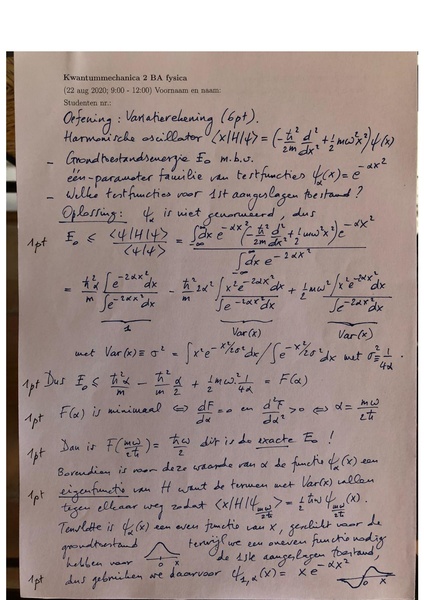 Kwantummechanica 2 BA fysica
(22 aug 2020; 9:00 - 12:00) Voornaam en naam:
Studenten nr.:
Oefening : Variatierekening (6pt).
Harmonische oscillator ⟨x|H|ψ⟩ = (-ħ²/2m d²/dx² + ½ mω²x²) ψ(x)
- Grondtoestandsenergie E₀ m.b.v.
één-parameter familie van testfuncties ψ_α(x) = e^{-αx²}
- Welke testfuncties voor 1st aangeslagen toestand ?
Oplossing : ψ_α is niet genormeerd, dus
1pt E₀ ≤ ⟨ψ|H|ψ⟩/⟨ψ|ψ⟩ = ∫_{-∞}^{∞} dx e^{-αx²} (-ħ²/2m d²/dx² + ½ mω²x²) e^{-αx²} / ∫_{-∞}^{∞} dx e^{-2αx²}
= ħ²α/m ∫e^{-2αx²}dx / ∫e^{-2αx²}dx - ħ²/m 2α² ∫x²e^{-2αx²}dx / ∫e^{-2αx²}dx + ½ mω² ∫x²e^{-2αx²}dx / ∫e^{-2αx²}dx
1 Var(x) Var(x)
met Var(x) ≡ σ² = ∫x² e^{-x²/2σ²}dx / ∫e^{-x²/2σ²}dx met σ² ≡ 1/4α .
1pt Dus E₀ ≤ ħ²α/m - ħ²/m α/2 + ½ mω² 1/4α = F(α)
1pt F(α) is minimaal ⇔ dF/dα = 0 en d²F/dα² > 0 ⇔ α = mω/2ħ
1pt Dan is F(mω/2ħ) = ħω/2 dit is de exacte E₀ !
Bovendien is voor deze waarde van α de functie ψ_α(x) een
1pt eigenfunctie van H want de termen met Var(x) vallen
tegen elkaar weg zodat ⟨x|H|ψ_{mω/2ħ}⟩ = ½ ħω ψ_{mω/2ħ}(x) .
Tenslotte is ψ_α(x) een even functie van x, gerelikt voor de
grondtoestand terwijl we een oneven functie nodig
hebben voor de 1ste aangeslagen toestand,
0 x
1pt dus gebruiken we daarvoor ψ_{1,α}(x) = x e^{-αx²}
0 x